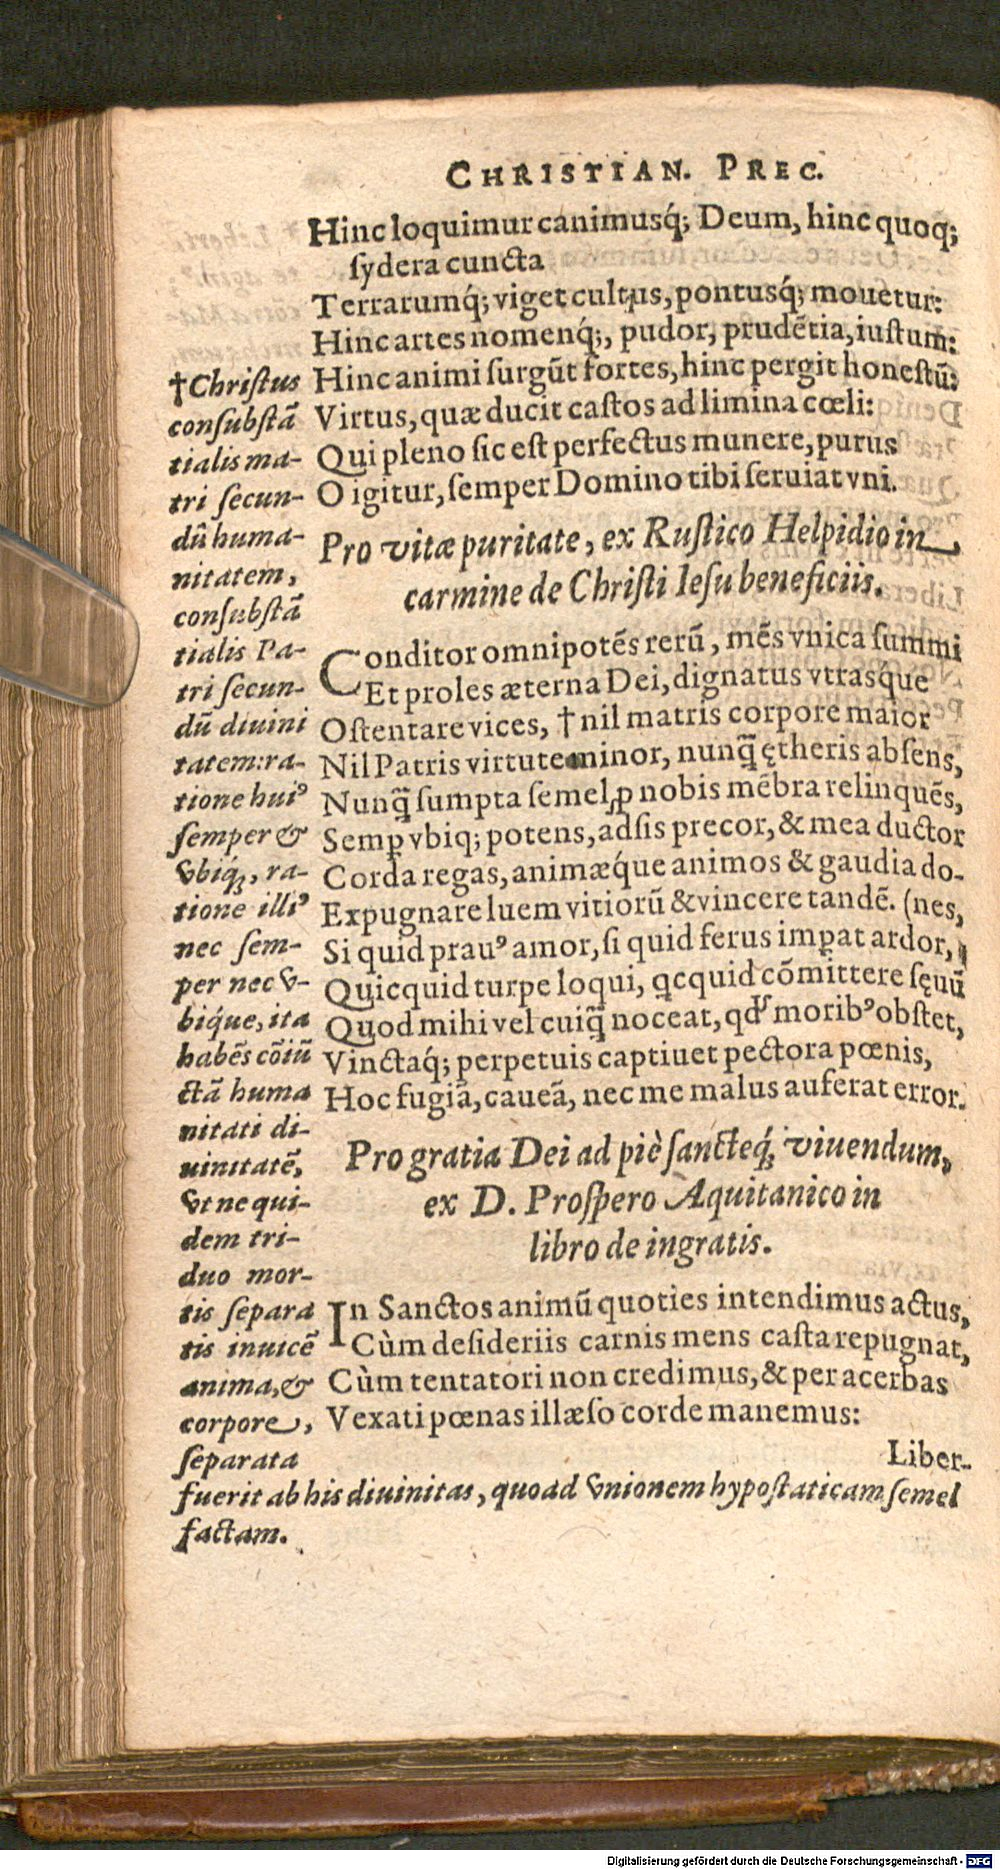 CHRISTIAN. PREC.
Hinc loquimur canimusq́; Deum, hinc quoq;
ſydera cuncta
Terrarumq́; viget cultus, pontusq́; mouetur:
Hinc artes nomenq́;, pudor, prudẽtia, iustum:
Hinc animi ſurgũt fortes, hinc pergit honeſtũ:
Virtus, quæ ducit caſtos ad limina cœli:
Qui pleno sic eſt perfectus munere, purus
O igitur, ſemper Domino tibi ſeruiat vni.
Pro vitæ puritate, ex Ruſtico Helpidio in
carmine de Chriſti Ieſu beneficiis.
Conditor omnipotẽs rerũ, mẽs vnica ſummi
Et proles æterna Dei, dignatus vtrasq́ue
Oſtentare vices, † nil matris corpore maior
Nil Patris virtute minor, nunq̃ ętheris abſens,
Nunq̃ ſumpta ſemel ꝓ nobis mẽbra relinquẽs,
Semꝑ vbiq; potens, adſis precor, & mea ductor
Corda regas, animæq́ue animos & gaudia do-
Expugnare luem vitiorũ & vincere tandẽ. (nes,
Si quid prauꝰ amor, ſi quid ferus imꝑat ardor,
Quicquid turpe loqui, qcquid cõmittere ſęuũ
Quod mihi vel cuiq̃ noceat, qđ moribꝰ obſtet,
Vinctaq́; perpetuis captiuet pectora pœnis,
Hoc fugiã, caueã, nec me malus auferat error.
Pro gratia Dei ad piè ſancteq́; viuendum,
ex D. Proſpero Aquitanico in
libro de ingratis.
In Sanctos animũ quoties intendimus actus,
Cùm desideriis carnis mens caſta repugnat,
Cùm tentatori non credimus, & per acerbas
Vexati pœnas illæſo corde manemus:
Liber-
†Chriſtus
conſubſtã
tialis ma-
tri ſecun-
dũ huma-
nitatem,
conſubſtã
tialis Pa-
tri ſecun-
dũ diuini
tatem: ra-
tione huiꝰ
ſemper &
vbiq́;, ra-
tione illiꝰ
nec ſem-
per nec v-
biq́ue, ita
habẽs cõiũ
ctã huma
nitati di-
uinitatẽ,
vt ne qui-
dem tri-
duo mor-
tis ſepara
tis inuicẽ
anima, &
corpore,
ſeparata
fuerit ab his diuinitas, quoad vnionem hypoſtaticam ſemel
factam.
Digitalisierung gefördert durch die Deutsche Forschungsgemeinschaft - DFG